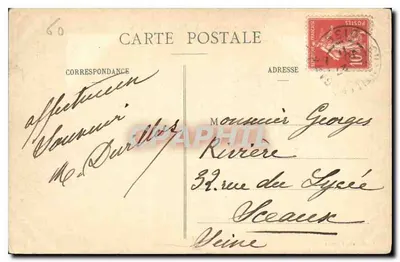 60
CARTE POSTALE
CORRESPONDANCE
ADRESSE
affectueux
Souvenir
Monsieur Georges
Rivière
32 rue du Lycée
Sceaux
Seine